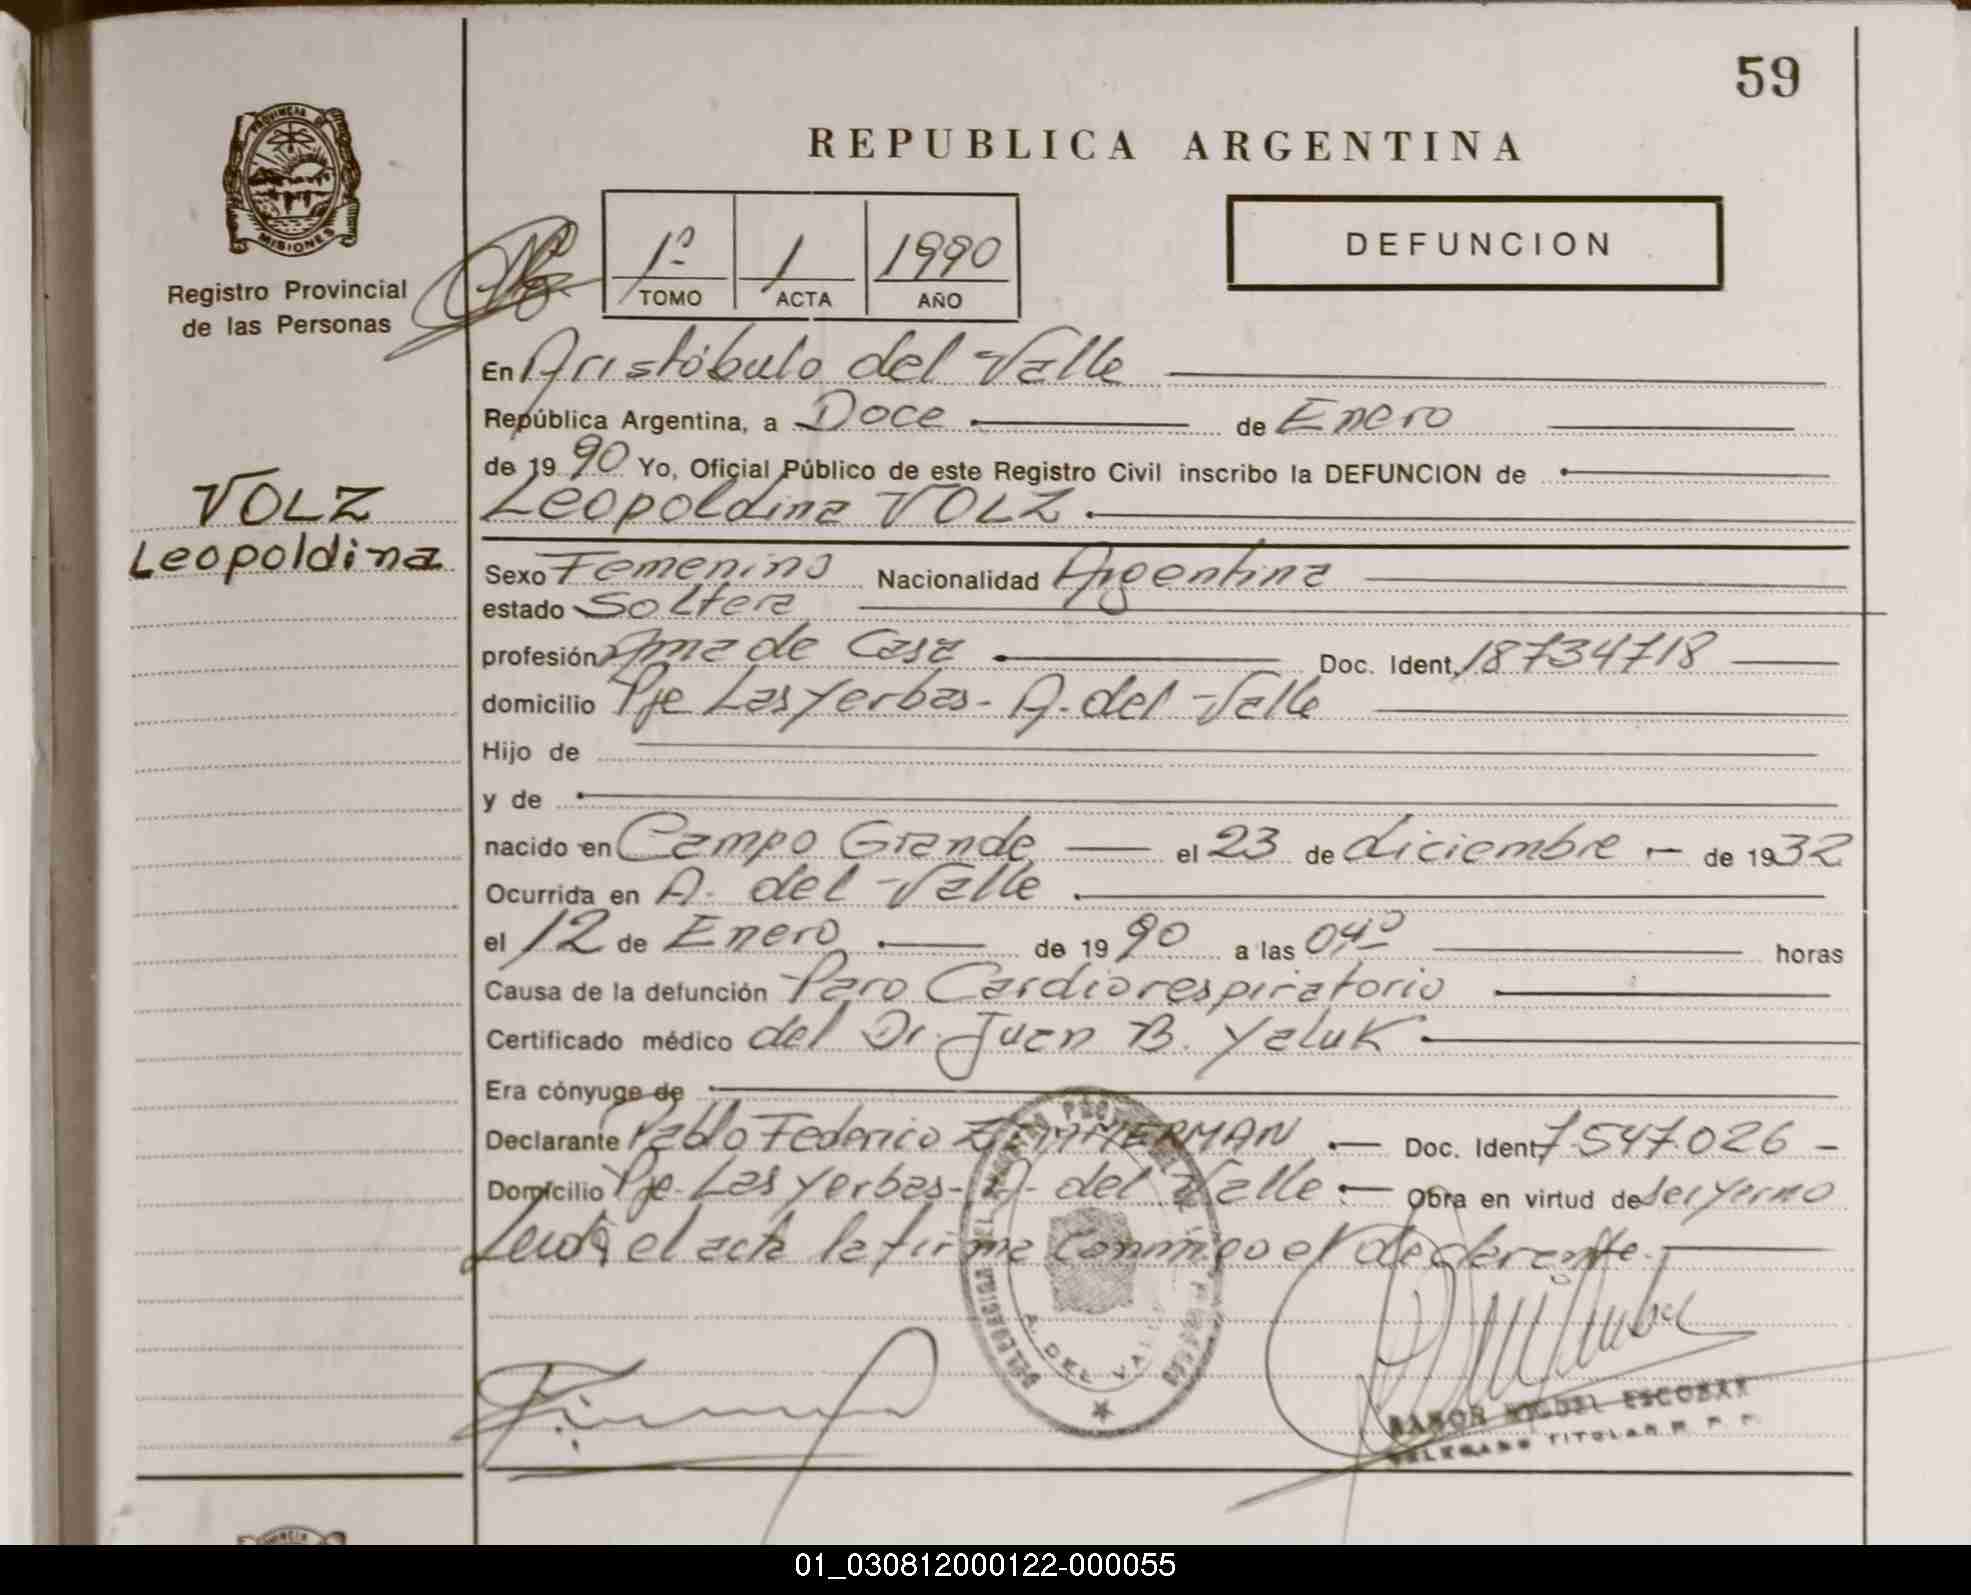 59
PROVINCIA DE
MISIONES
Registro Provincial
de las Personas
REPUBLICA ARGENTINA
1º TOMO 1 ACTA 1990 AÑO
DEFUNCION
En Aristóbulo del Valle
República Argentina, a Doce de Enero
de 1990 Yo, Oficial Público de este Registro Civil inscribo la DEFUNCION de
VOLZ
Leopoldina
Leopoldina VOLZ.
Sexo Femenino Nacionalidad Argentina
estado Soltera
profesión Ama de Casa Doc. Ident. 18734718
domicilio Pje Las Yerbas - A. del Valle
Hijo de
y de
nacido en Campo Grande el 23 de diciembre de 1932
Ocurrida en A. del Valle
el 12 de Enero de 1990 a las 04,º horas
Causa de la defunción Paro Cardiorespiratorio
Certificado médico del Dr. Juan B. Yaluk
Era cónyuge de
Declarante Pablo Federico ZIMMERMAN Doc. Ident 7.547.026
Domicilio Pje. Las Yerbas - A. del Valle Obra en virtud de ser yerno
Leida el acta la firma conmigo el declarante.
A. DEL VALLE
RAMON MIGUEL ESCOBAR
DELEGADO TITULAR R. P. P.
01_030812000122-000055